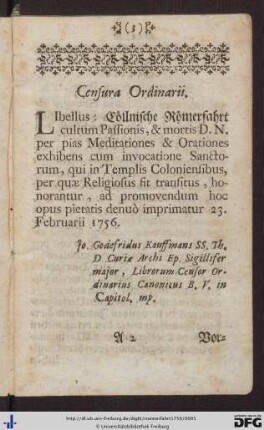 (3)
Censura Ordinarii.
LIbellus: Cöllnische Römerfahrt
cultum Passionis, & mortis D. N.
per pias Meditationes & Orationes
exhibens cum invocatione Sancto-
rum, qui in Templis Coloniensibus,
per quæ Religiosus fit transitus, ho-
norantur, ad promovendum hoc
opus pietatis denuò imprimatur 23.
Februarii 1756.
Jo. Godefridus Kauffmans SS. Th.
D. Curiæ Archi Ep. Sigillifer
major, Librorum Censor Or-
dinarius Canonicus B. V. in
Capitol, mp.
A 2 Vor-
© Universitätsbibliothek Freiburg
DFG